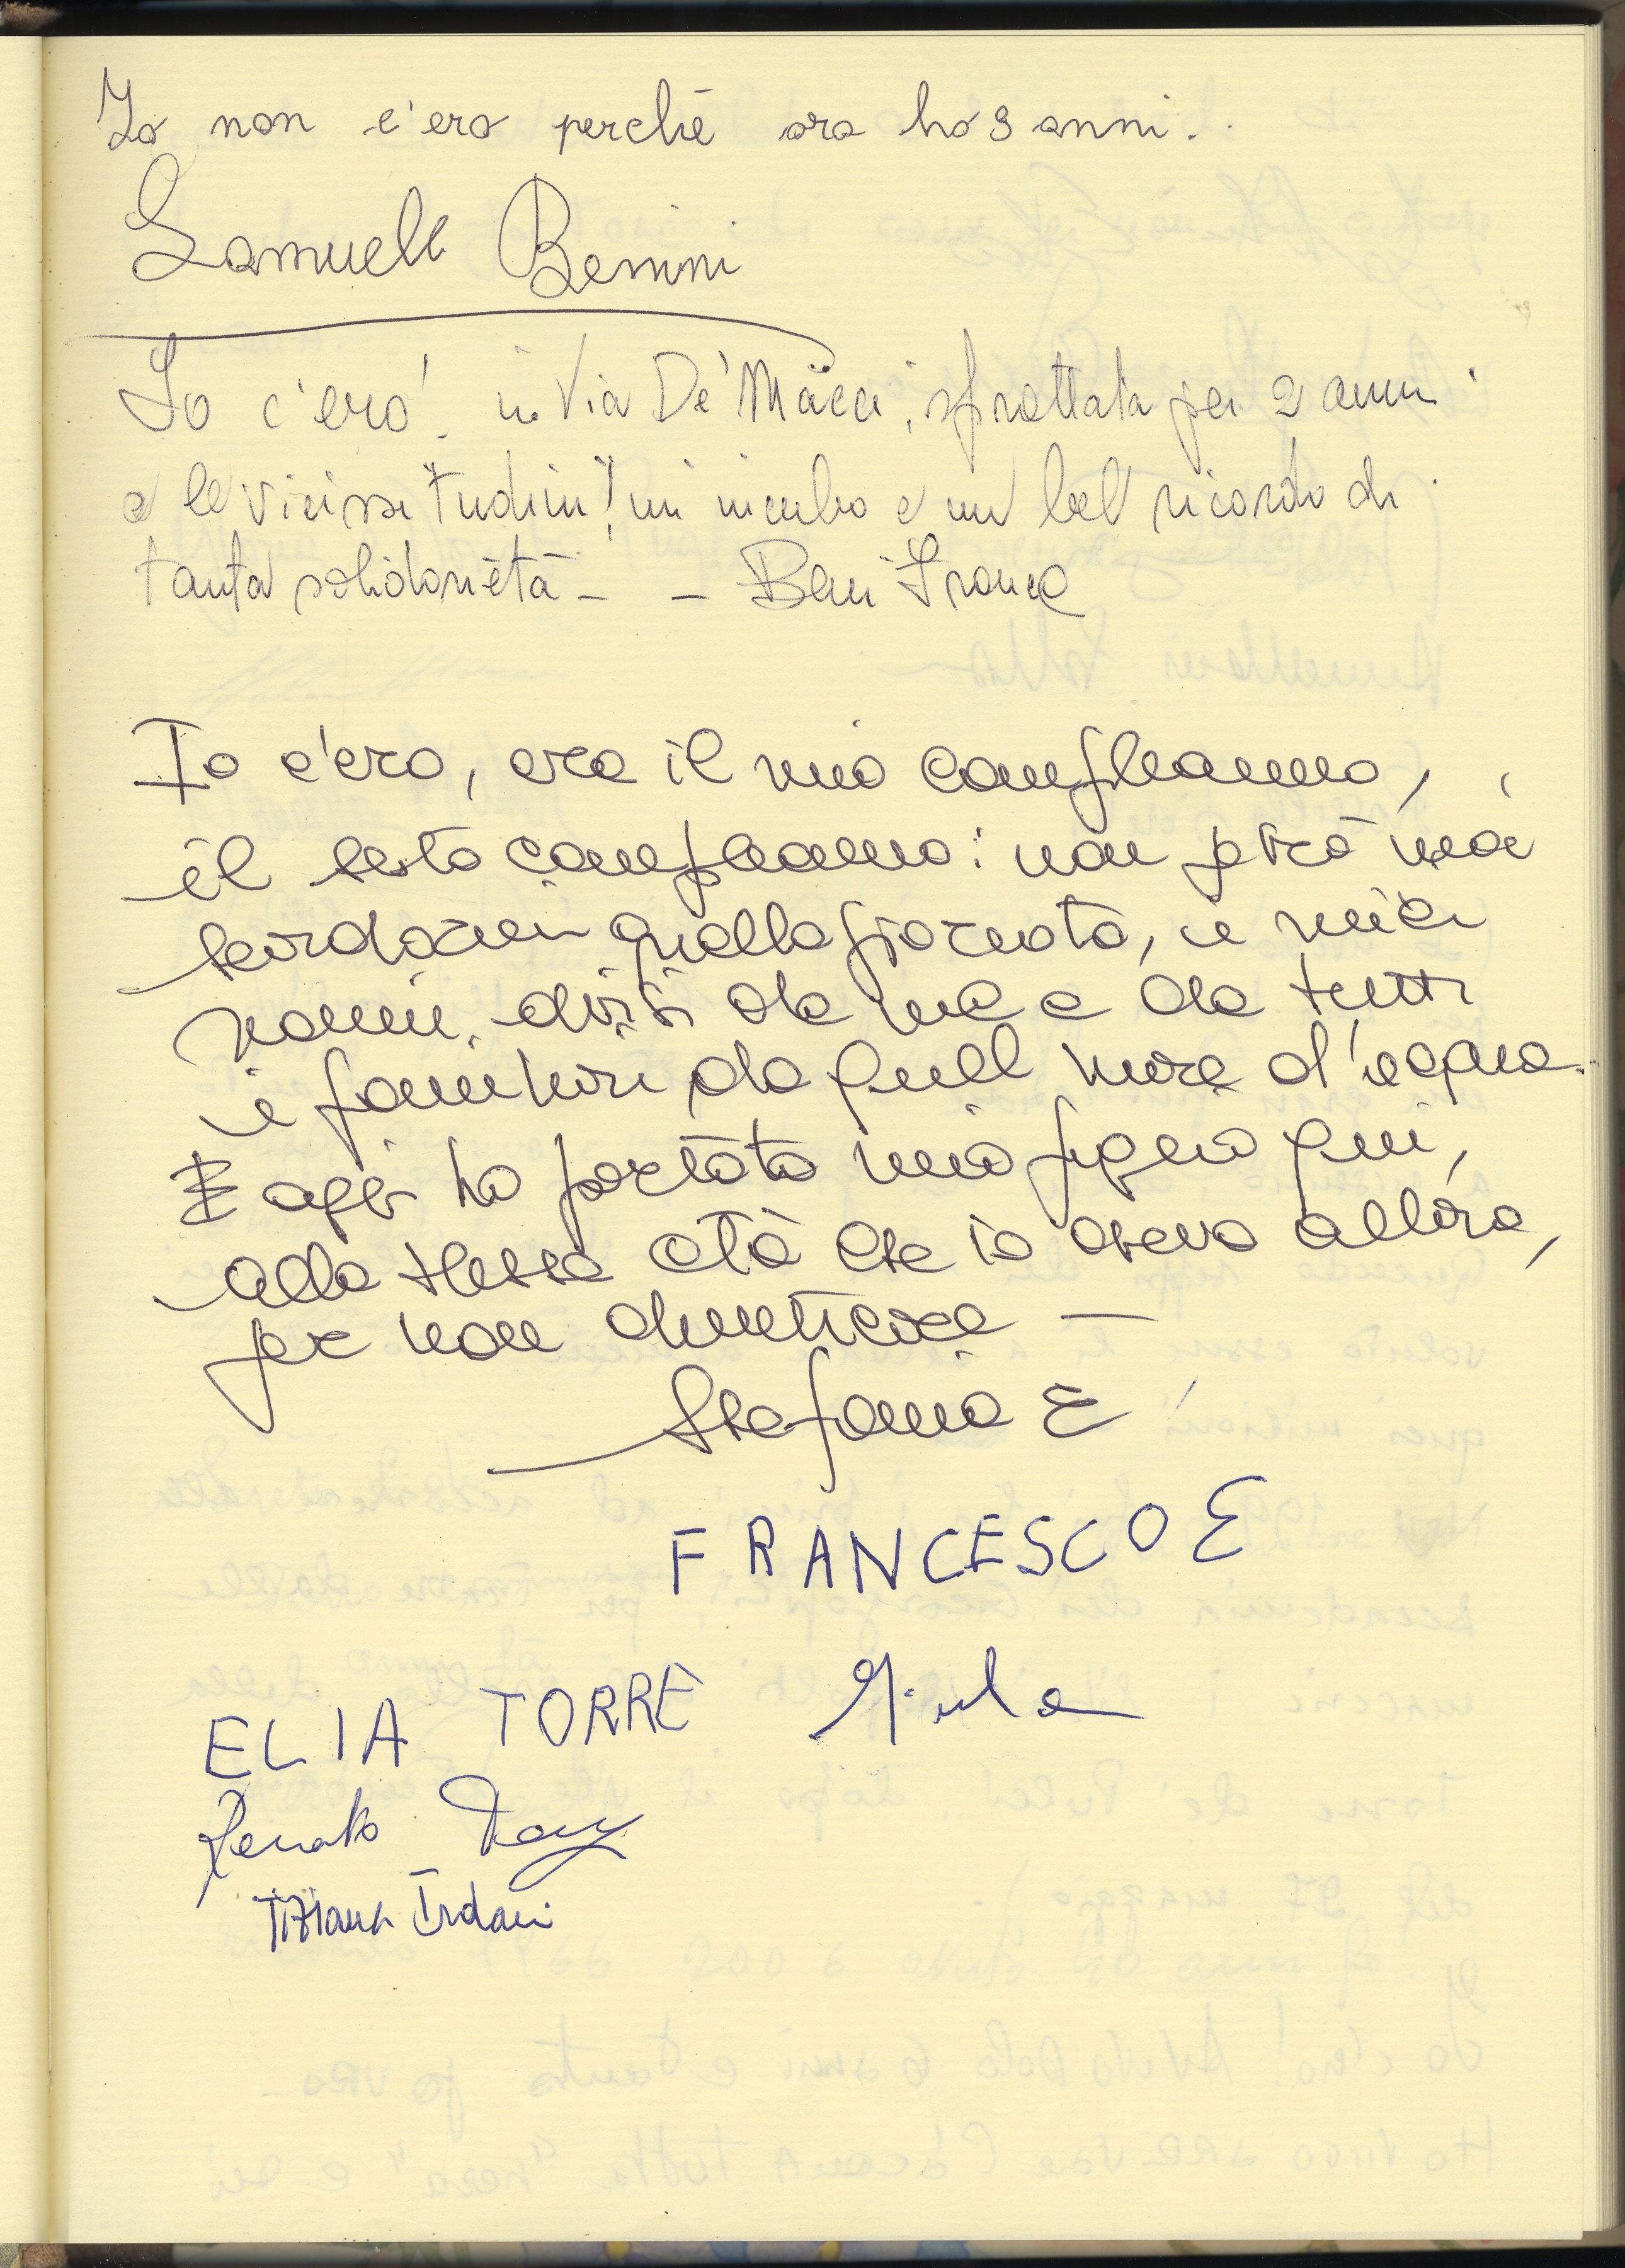 Io non c'ero perché ora ho 9 anni.
Samuele Benini
Io c'ero! in Via De' Macci, sfrattata per 2 anni
e le vicissitudini! un incubo e un bel ricordo di
tanta solidarietà - - Beni Franca
Io c'ero, era il mio compleanno,
il sesto compleanno: non potrò mai
scordarmi quella giornata, i miei
nonni, divisi da me e da tutti
i familiari da quell mare d'acqua.
E oggi ho portato mio figlio qui,
alla stessa età che io avevo allora,
per non dimenticare —
Stefania E
FRANCESCO E
ELIA TORRE Giulia
Renato
Tiziana